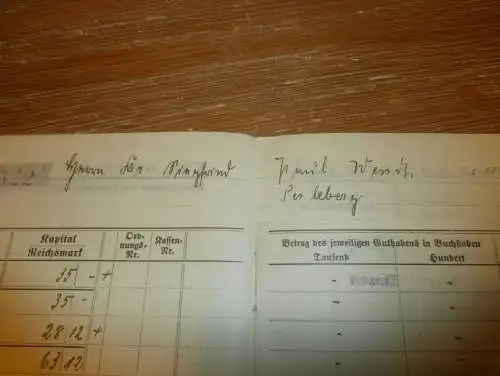 Herrn Siegfried
Paul Wendt,
Perleberg
Kapital
Reichsmark
Ord-
nungs-
Nr.
Kassen-
Nr.
Betrag des jeweiligen Guthabens in Buchstaben
Tausend
Hundert
35 - +
35 -
28 12 +
63 12